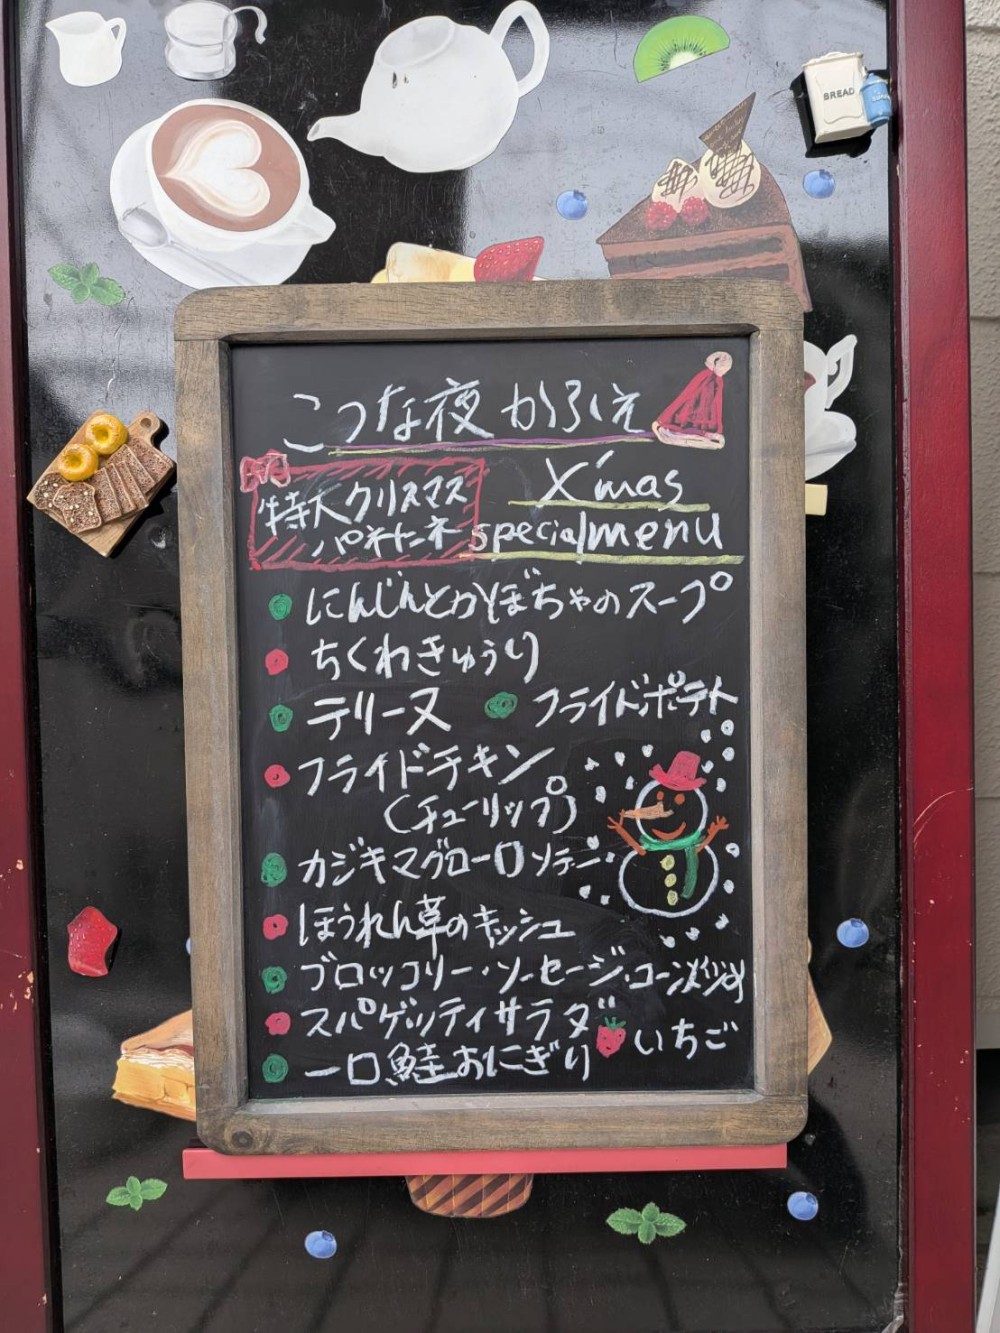 BREAD
こつな夜 かふぇ
特大クリスマス
パネトーネ
X'mas
special menu
にんじんとかぼちゃのスープ
ちくわきゅうり
テリーヌ フライドポテト
フライドチキン
(チューリップ)
カジキマグロ一口ソテー
ほうれん草のキッシュ
ブロッコリー・ソーセージ・コーン
スパゲッティサラダ いちご
一口鮭おにぎり